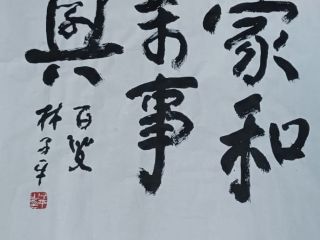 家和
萬事
興
百贤
林子平